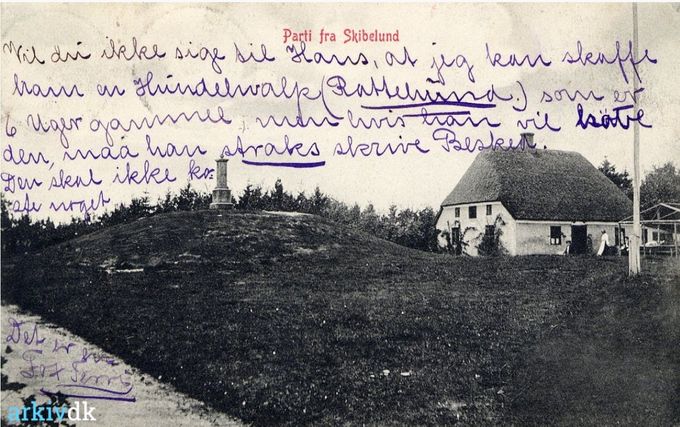 Parti fra Skibelund
Vil du ikke sige til Hans, at jeg kan skaffe
ham en Hundehvalp (Rottehund) som er
6 Uger gammel, men hvis han vil have
den, maa han straks skrive Besked.
Den skal ikke ko-
ste noget
Det er en
Fox Terrier
arkivdk